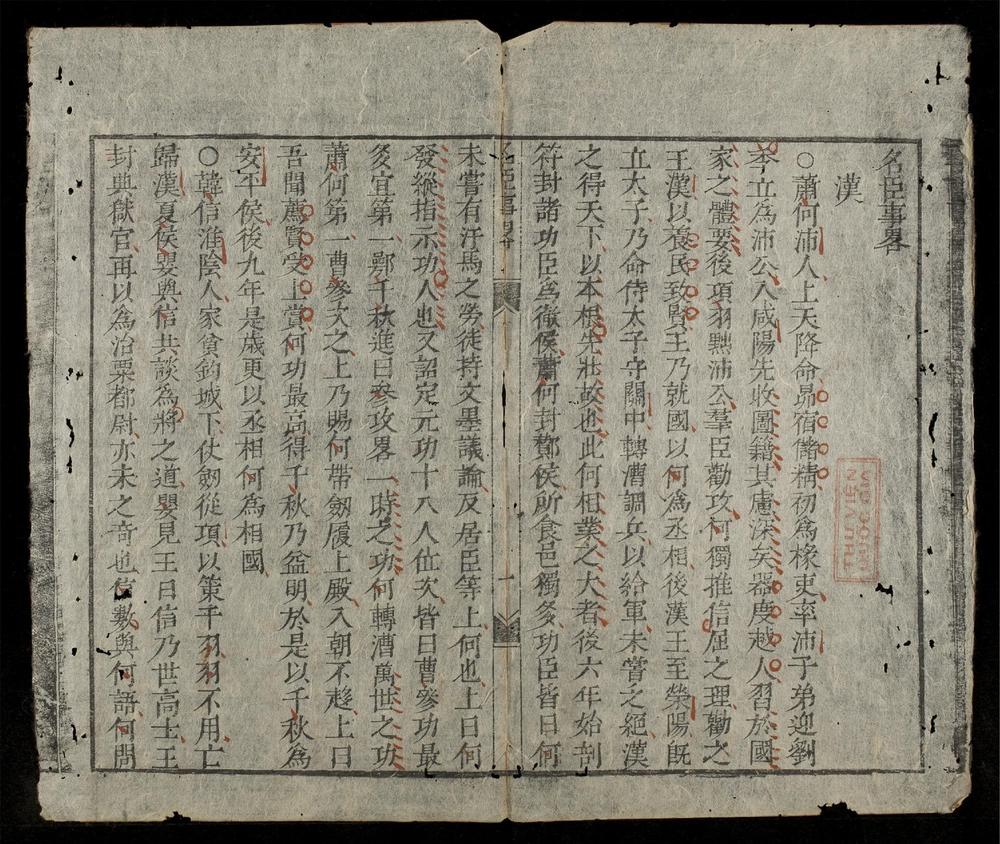 名臣事畧
漢
○蕭何沛人上天降命昴宿儲精初為椽吏率沛子弟迎劉
季立為沛公入咸陽先收圖籍其慮深矣器度越人習於國
家之體要後項羽黜沛公羣臣勸攻何獨推信屈之理勸之
王漢以養民致賢王乃就國以何為丞相後漢王至榮陽旣
立太子乃命侍太子守關中轉漕調兵以給軍未嘗之絕漢
之得天下以本根先壯故也此何相業之大者後六年始剖
符封諸功臣爲徹侯蕭何封酇侯所食邑獨多功臣皆曰何
名臣事畧
一
未嘗有汗馬之勞徒持文墨議論反居臣等上何也上曰何
發縱指示功人也又詔定元功十八人位次皆曰曹參功最
多宜第一鄂千秋進曰參攻畧一時之功何轉漕萬世之功
蕭何第一曹參次之上乃賜何帶劔履上殿入朝不趍上曰
吾聞薦賢受上賞何功最高得千秋乃益明於是以千秋為
安平侯後九年是歲更以丞相何為相國
○韓信淮陰人家貧釣城下仗劔從項以策干羽羽不用亡
歸漢夏侯嬰與信共談為將之道嬰見王曰信乃世高士王
封典獄官再以為治粟都尉亦未之奇也信數與何語何問